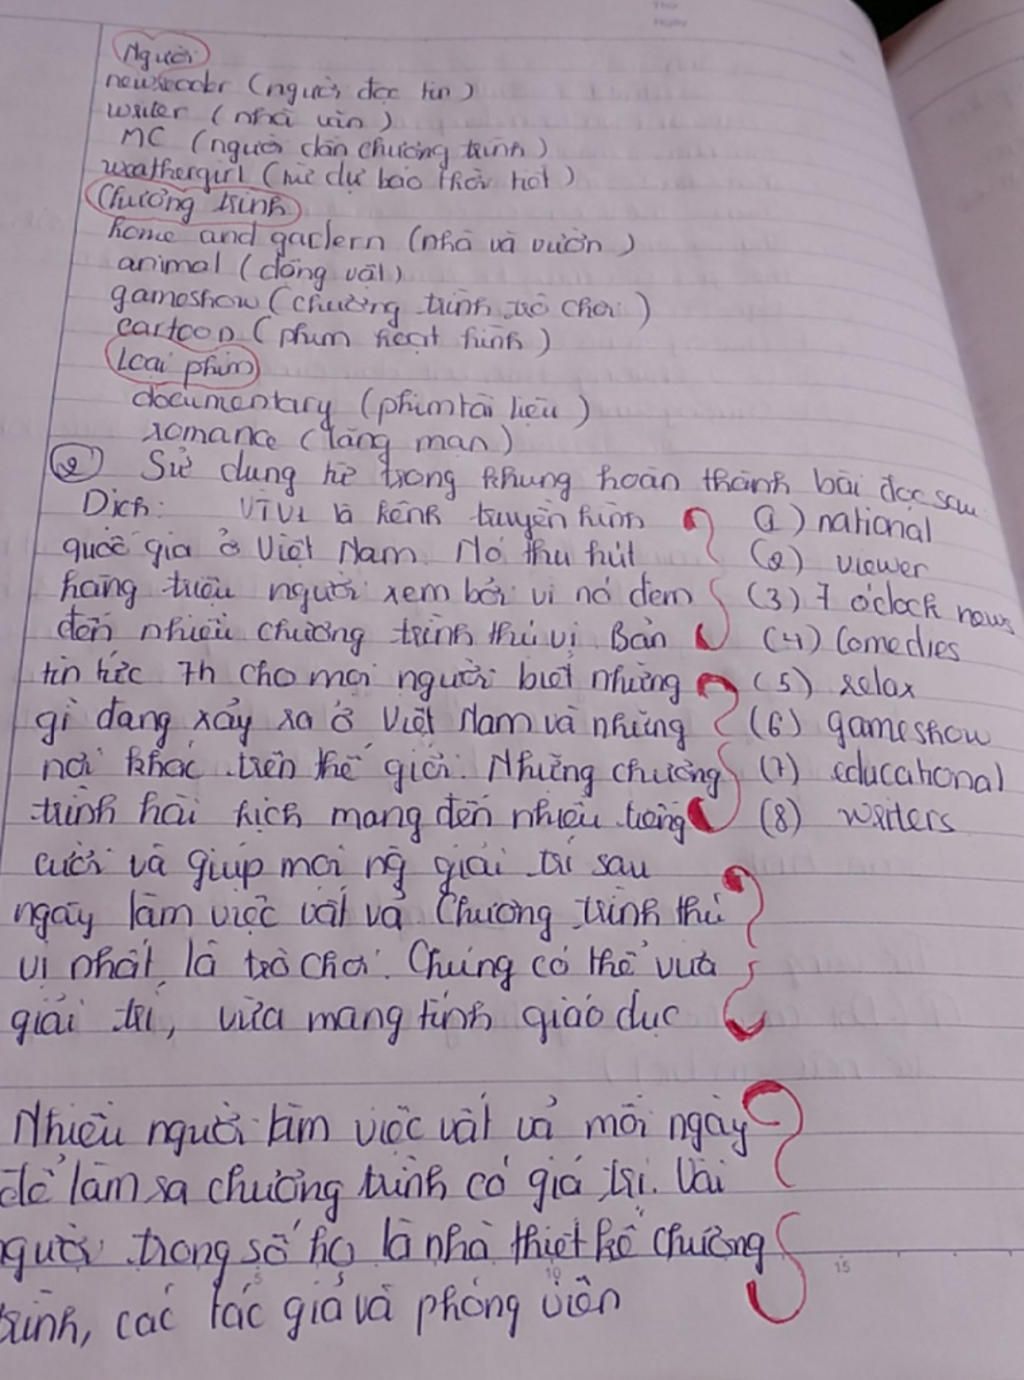 Thứ
Ngày
Người
newsreader (người đọc tin)
writer (nhà văn)
MC (người dẫn chương trình)
weathergirl (nữ dự báo thời tiết)
Chương trình
home and gardern (nhà và vườn)
animal (động vật)
gameshow (chương trình trò chơi)
cartoon (phim hoạt hình)
Loại phim
documentary (phim tài liệu)
romance (lãng mạn)
② Sử dụng từ trong khung hoàn thành bài đọc sau
Dịch: VTV1 là kênh truyền hình
quốc gia ở Việt Nam. Nó thu hút
hàng triệu người xem bởi vì nó đem
đến nhiều chương trình thú vị. Bản
tin tức 7h cho mọi người biết những
gì đang xảy ra ở Việt Nam và những
nơi khác trên thế giới. Những chương
trình hài kịch mang đến nhiều tiếng
cười và giúp mọi ng giải trí sau
ngày làm việc vất vả. Chương trình thú
vị nhất là trò chơi. Chúng có thể vừa
giải trí, vừa mang tính giáo dục
Nhiều người làm việc vất vả mỗi ngày
để làm ra chương trình có giá trị. Vài
người trong số họ là nhà thiết kế chương
trình, các tác giả và phóng viên
(1) national
(2) viewer
(3) 7 o'clock news
(4) Comedies
(5) relax
(6) gameshow
(7) educational
(8) writers
5
10
15